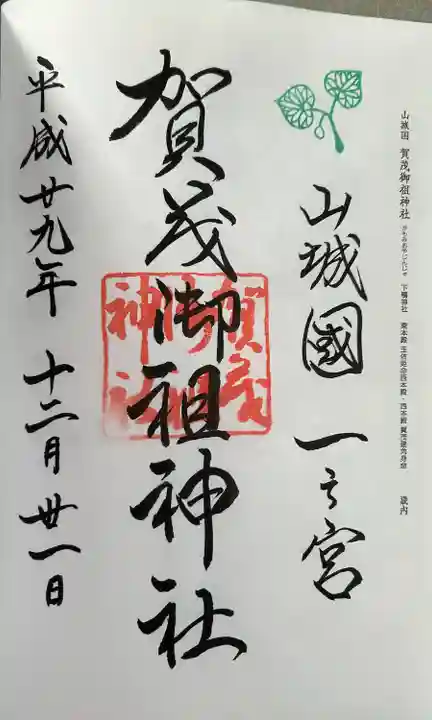 山城国 賀茂御祖神社 かもみおやじんじゃ 下鴨神社 東本殿 玉依姫命 西本殿・賀茂建角身命 畿内
山城國 一之宮
賀茂御祖神社
賀茂御祖神社
平成廿九年 十二月 丗一日